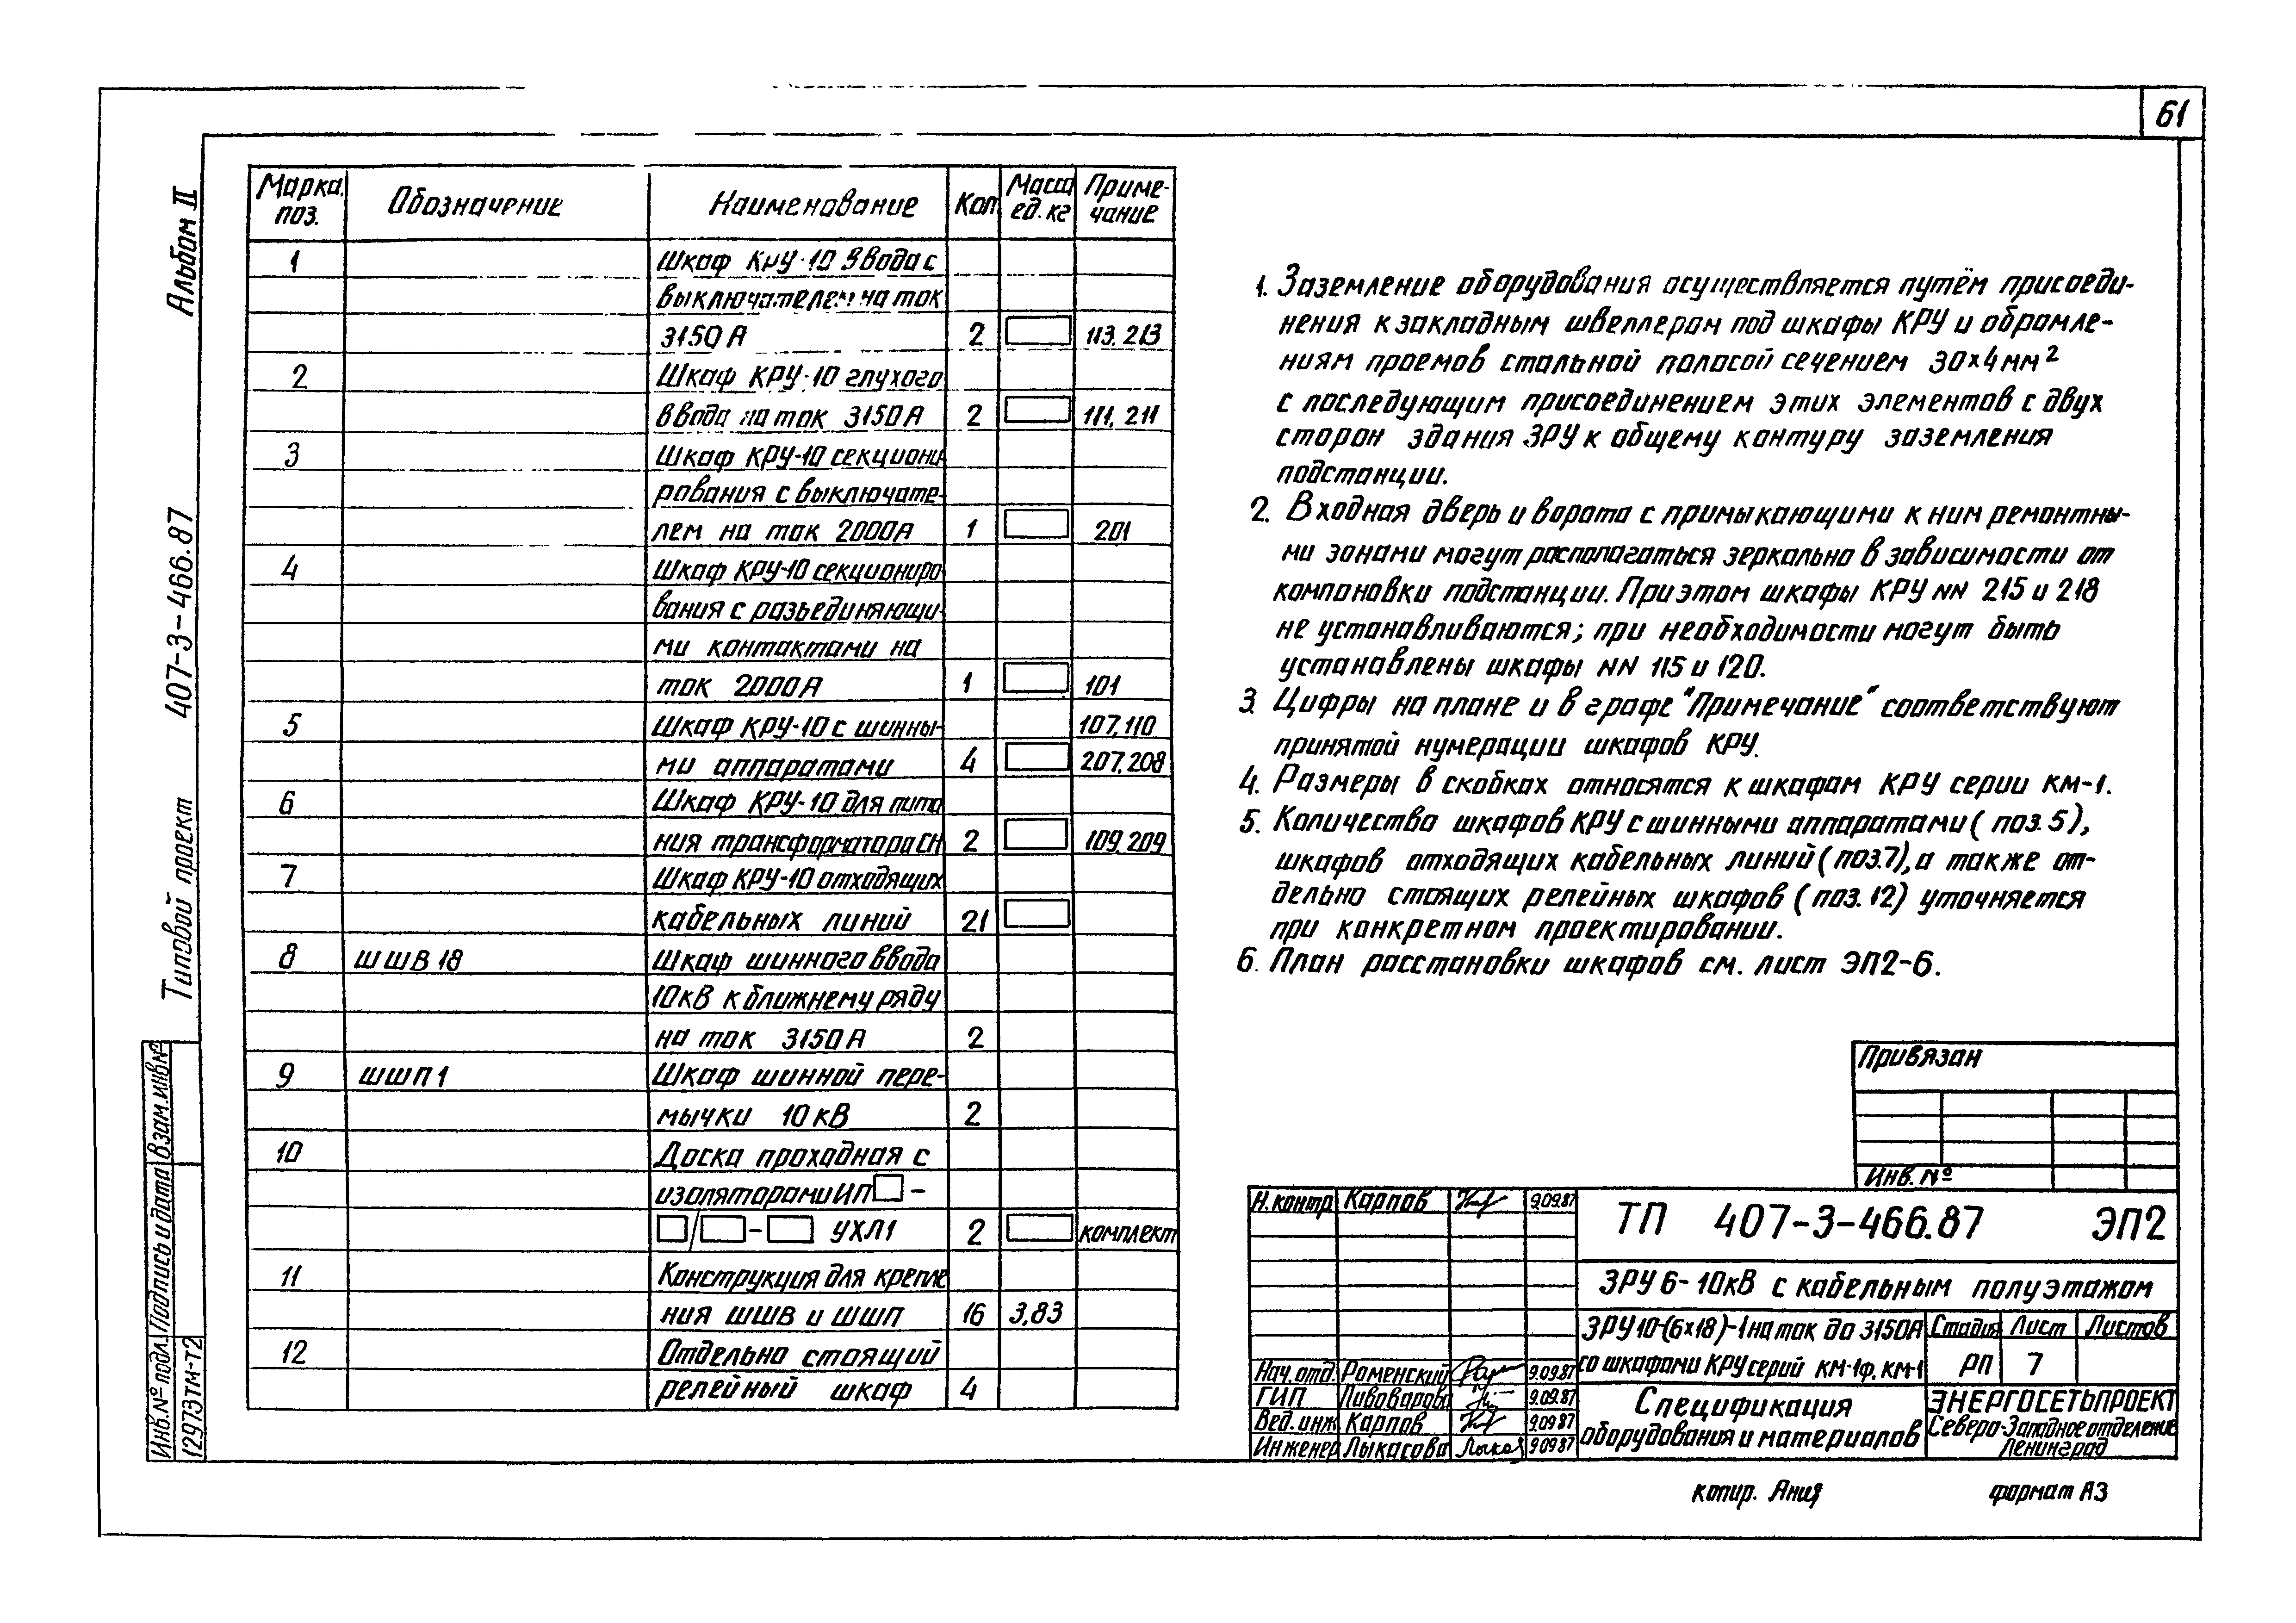 61
Альбом II
407-3-466.87
Типовой проект
Марка, поз. Обозначение Наименование Кол. Масса ед. кг Приме-чание
1 Шкаф КРУ-10 ввода с
выключателем на ток
3150 А 2 113, 213
2 Шкаф КРУ-10 глухого
ввода на ток 3150 А 2 111, 211
3 Шкаф КРУ-10 секциони
рования с выключате-
лем на ток 2000А 1 201
4 Шкаф КРУ-10 секциониро
вания с разъединяющи-
ми контактами на
ток 2000А 1 101
5 Шкаф КРУ-10 с шинны- 107, 110
ми аппаратами 4 207, 208
6 Шкаф КРУ-10 для пита
ния трансформатора СН 2 109, 209
7 Шкаф КРУ-10 отходящих
кабельных линий 21
8 ШШВ 18 Шкаф шинного ввода
10кВ к ближнему ряду
на ток 3150 А 2
9 ШШП 1 Шкаф шинной пере-
мычки 10 кВ 2
10 Доска проходная с
изоляторами ИП□ -
□/□-□ УХЛ1 2 комплект
11 Конструкция для крепле
ния ШШВ и ШШП 16 3,83
12 Отдельно стоящий
релейный шкаф 4
1. Заземление оборудования осуществляется путём присоеди-
нения к закладным швеллерам под шкафы КРУ и обрамле-
ниям проемов стальной полосой сечением 30×4мм²
с последующим присоединением этих элементов с двух
сторон здания ЗРУ к общему контуру заземления
подстанции.
2. Входная дверь и ворота с примыкающими к ним ремонтны-
ми зонами могут располагаться зеркально в зависимости от
компоновки подстанции. При этом шкафы КРУ NN 215 и 218
не устанавливаются; при необходимости могут быть
установлены шкафы NN 115 и 120.
3. Цифры на плане и в графе "Примечание" соответствуют
принятой нумерации шкафов КРУ.
4. Размеры в скобках относятся к шкафам КРУ серии КМ-1.
5. Количество шкафов КРУ с шинными аппаратами (поз. 5),
шкафов отходящих кабельных линий (поз.7), а также от-
дельно стоящих релейных шкафов (поз. 12) уточняется
при конкретном проектировании.
6. План расстановки шкафов см. лист ЭП2-6.
Привязан
Инв. №
Н.контр Карпов 9.09.87
ТП 407-3-466.87 ЭП2
ЗРУ 6-10кВ с кабельным полуэтажом
ЗРУ10-(6×18)-1 на ток до 3150А
со шкафами КРУ серий КМ-1ф, КМ-1
Стадия Лист Листов
РП 7
Нач. отд. Роменский 9.09.87
ГИП Пивоварова 9.09.87
Вед. инж Карпов 9.09.87
Инженер Лыкасова 9.09.87
Спецификация
оборудования и материалов
ЭНЕРГОСЕТЬПРОЕКТ
Северо-Западное отделение
Ленинград
Инв. № подл. Подпись и дата Взам. инв. №
12973тм-т2
копир. Ания
формат А3